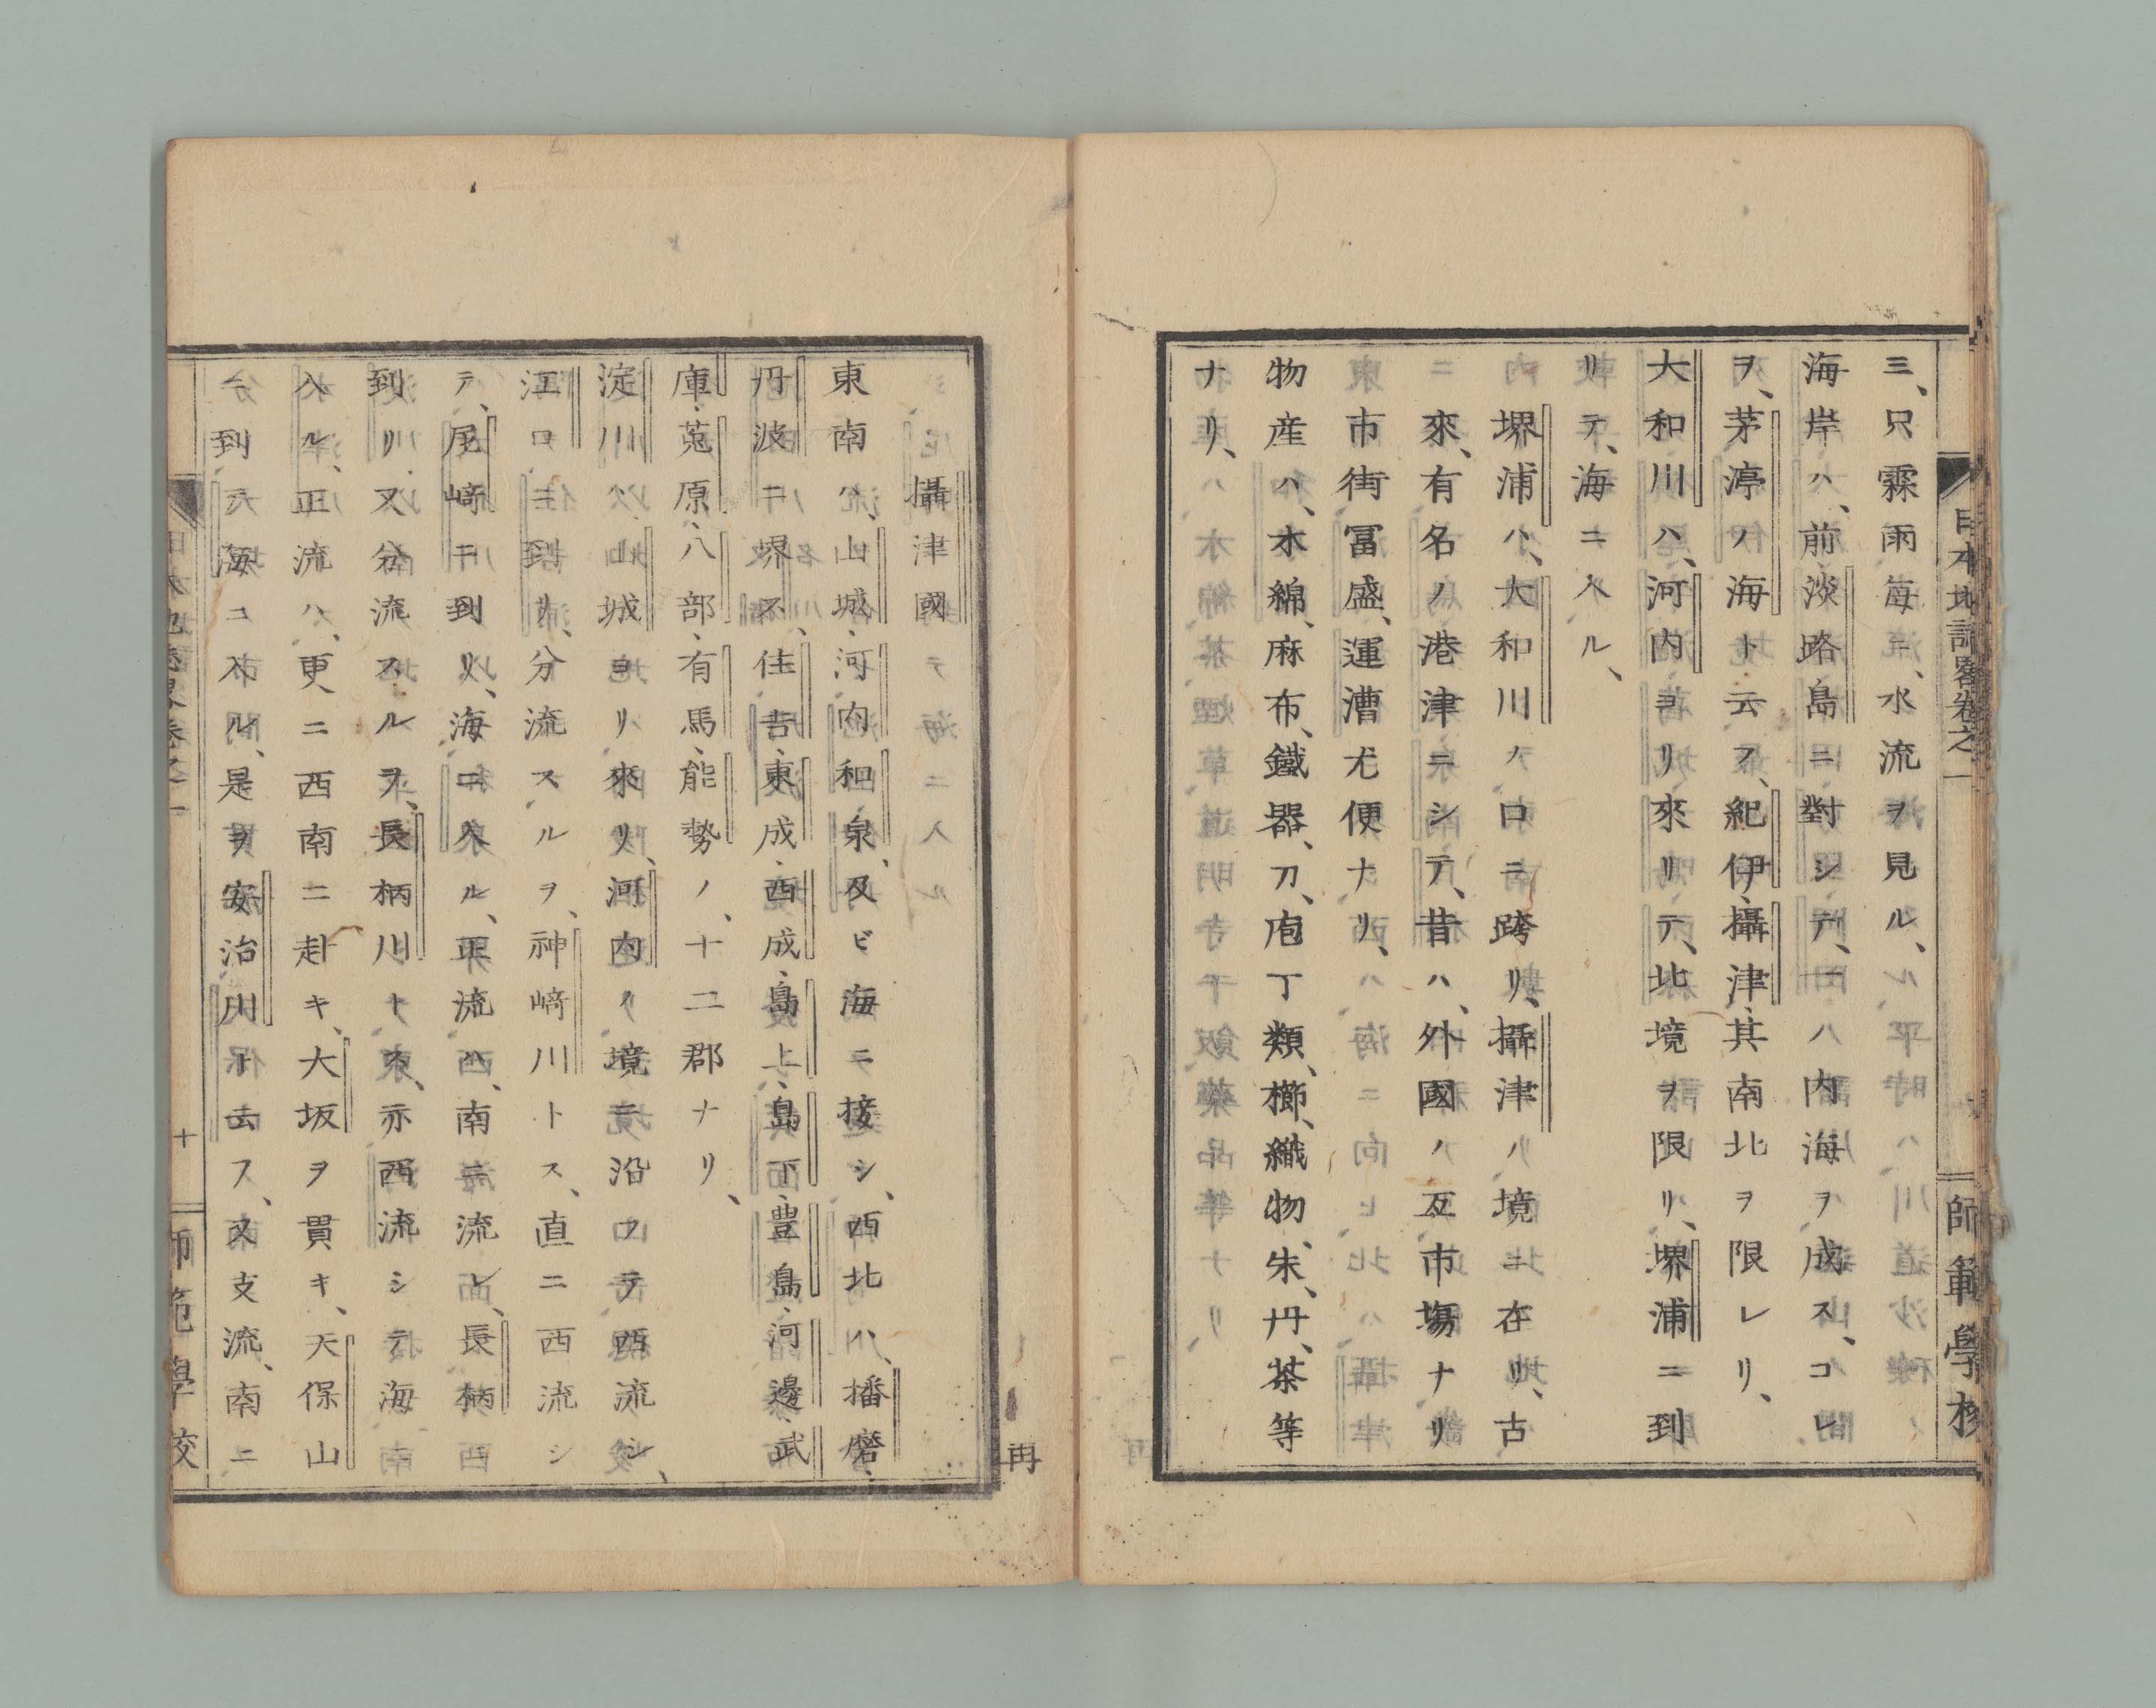 日本地誌畧卷之一
師範學校
三、只霖雨每ニ、水流ヲ見ル、
海岸ハ、前淡路島ニ對シテ、一ハ内海ヲ成ス、コレ
ヲ、茅渟ノ海ト云フ、紀伊、攝津、其南北ヲ限レリ、
大和川ハ、河内ヨリ來リテ、北境ヲ限リ、堺浦ニ到
リテ、海ニ入ル、
堺浦ハ、大和川ノ口ニ跨リ、攝津ノ境ニ在リ、古
來、有名ノ港津ニシテ、昔ハ、外國ノ互市場ナリ
市街冨盛、運漕尤便ナリ、
物産ハ、木綿、麻布、鐵器、刀、庖丁類、櫛、織物、朱、丹、茶等
ナリ、
再
攝津國
東南ハ、山城、河内、和泉、及ビ海ニ接シ、西北ハ、播磨、
丹波ニ堺ス、住吉、東成、西成、島上、島下、豊島、河邊、武
庫、菟原、八部、有馬、能勢ノ、十二郡ナリ、
淀川ハ、山城ヨリ來リ、河内ノ境ニ沿フテ西流シ、
江口ニ到リ、分流スルヲ、神﨑川トス、直ニ西流シ
テ、尾﨑ニ到リ、海ニ入ル、正流ハ、南ニ流レ、長柄ニ
到リ、又分流スルヲ、長柄川トス、亦西流シテ海ニ
入ル、正流ハ、更ニ西南ニ赴キ、大坂ヲ貫キ、天保山
ニ到テ海ニ入ル、是ヲ安治川ト云フ、又支流、南ニ
日本地誌畧卷之一
十
師範學校